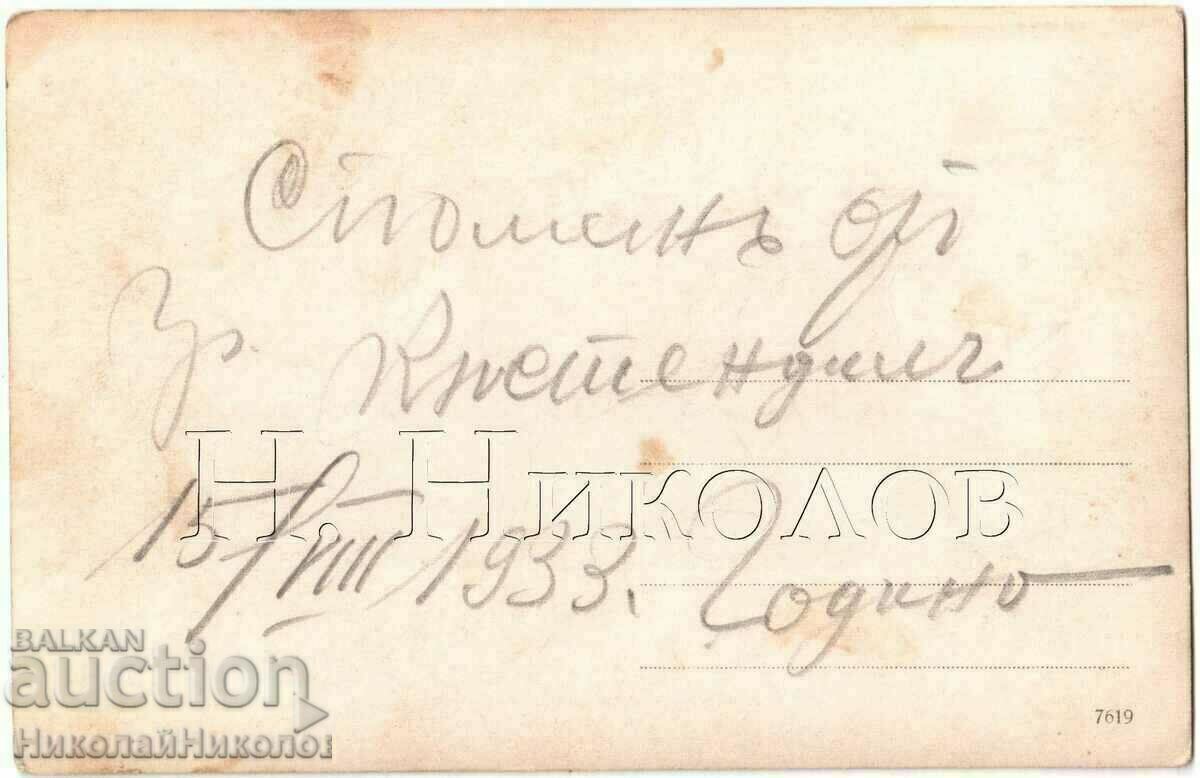 Споменъ отъ
гр. Кюстендилъ
Н. Николов
15/VIII 1933. година
BALKAN
auction
НиколайНиколов
7619